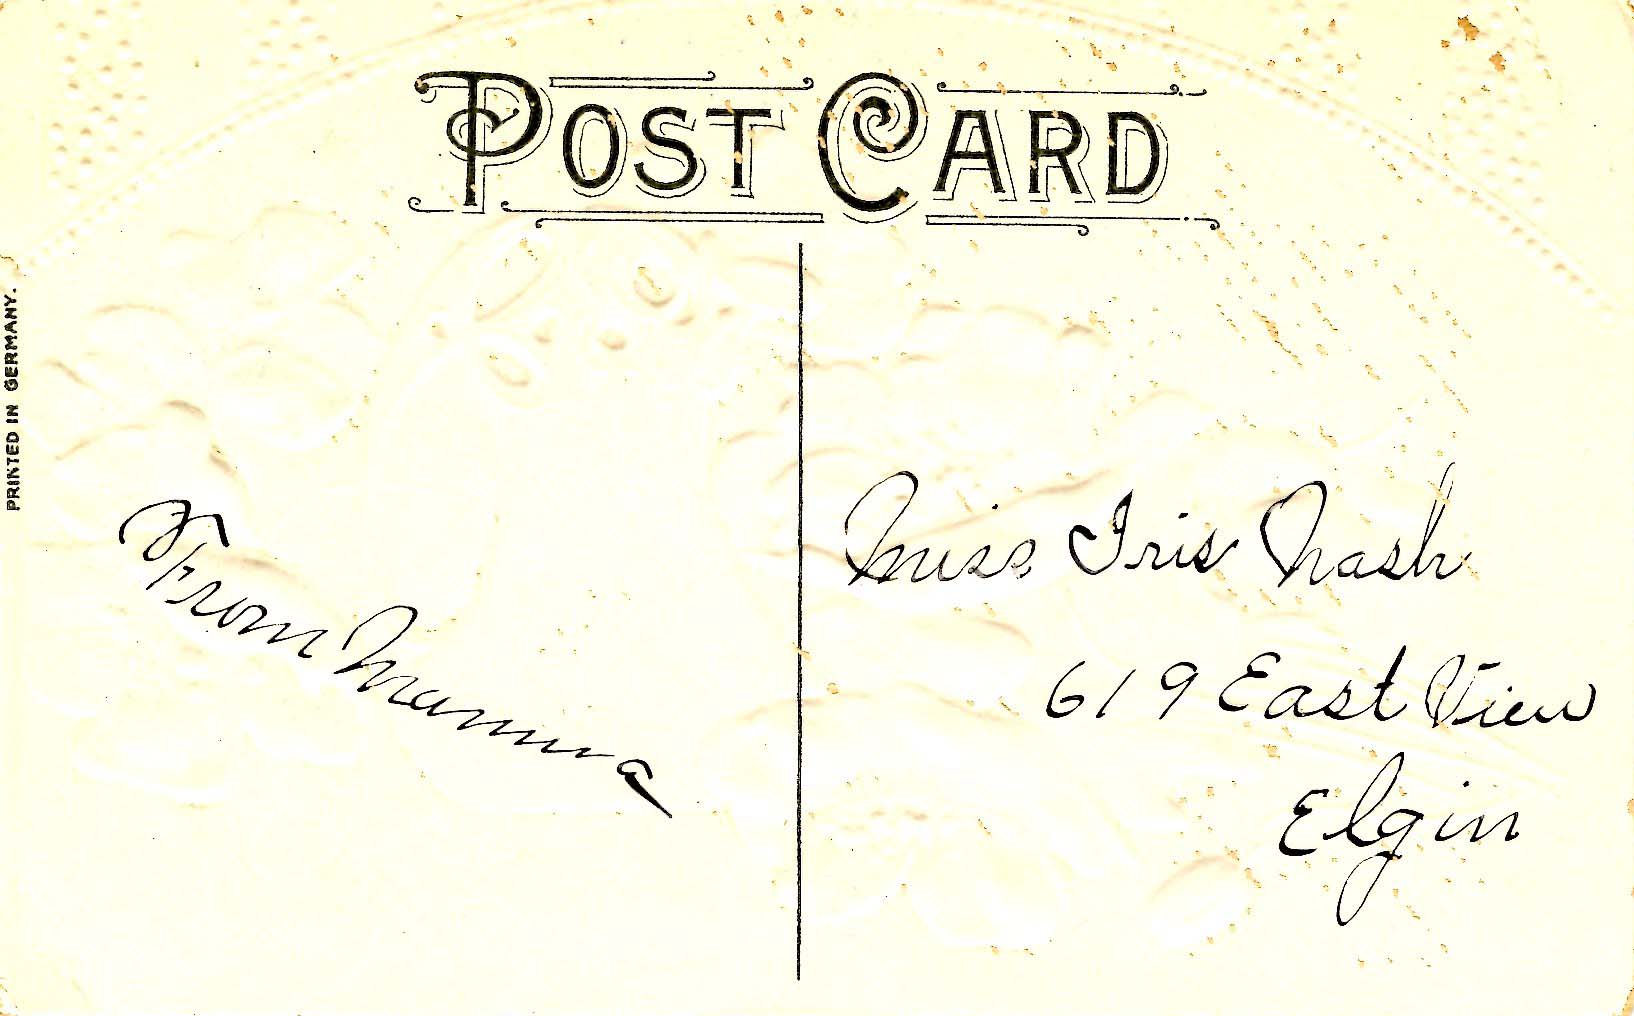 POST CARD
PRINTED IN GERMANY.
From Mamma
Miss Iris Nash
619 East View
Elgin